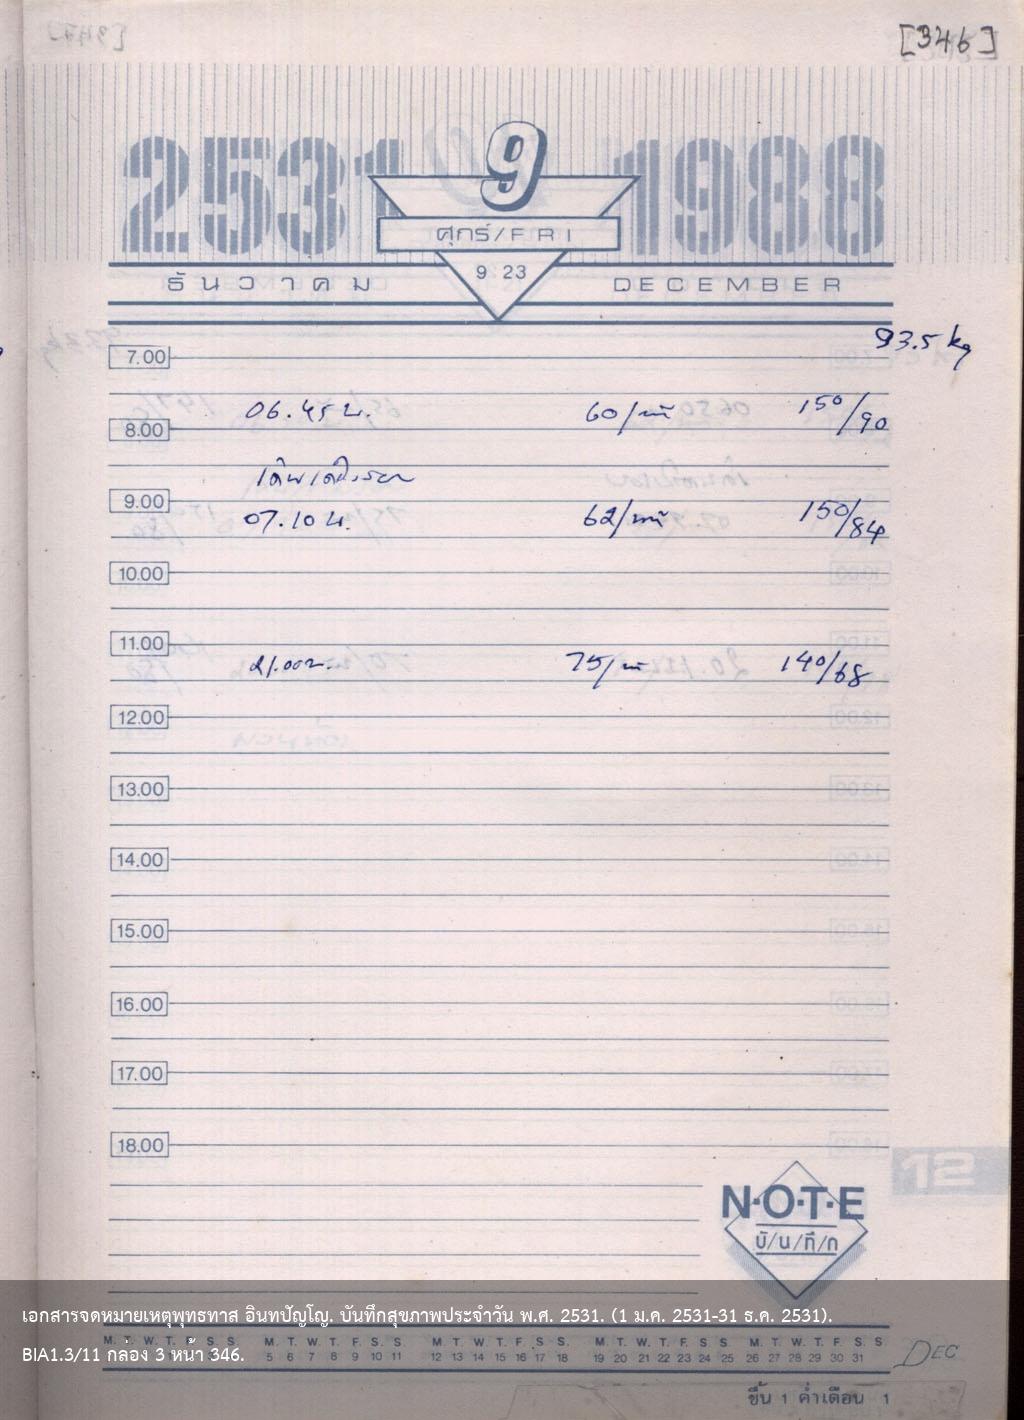 [346]
2531 9 1988
ศุกร์/FRI
9 23
ธันวาคม DECEMBER
93.5 kg
7.00
06.45 น. 60/นาที 150/90
8.00
9.00
07.10 น. 62/นาที 150/84
10.00
11.00
21.00 น. 75/นาที 140/68
12.00
13.00
14.00
15.00
16.00
17.00
18.00
12
N·O·T·E
บั/น/ทึ/ก
เอกสารจดหมายเหตุพุทธทาส อินทปัญโญ. บันทึกสุขภาพประจำวัน พ.ศ. 2531. (1 ม.ค. 2531-31 ธ.ค. 2531).
M. T. W. T. F. S. S. M. T. W. T. F. S. S. M. T. W. T. F. S. S. M. T. W. T. F. S. S. M. T. W. T. F. S. S.
BIA1.3/11 กล่อง 3 หน้า 346.
5 6 7 8 9 10 11 12 13 14 15 16 17 18 19 20 21 22 23 24 25 26 27 28 29 30 31
DEC
ขึ้น 1 ค่ำเดือน 1